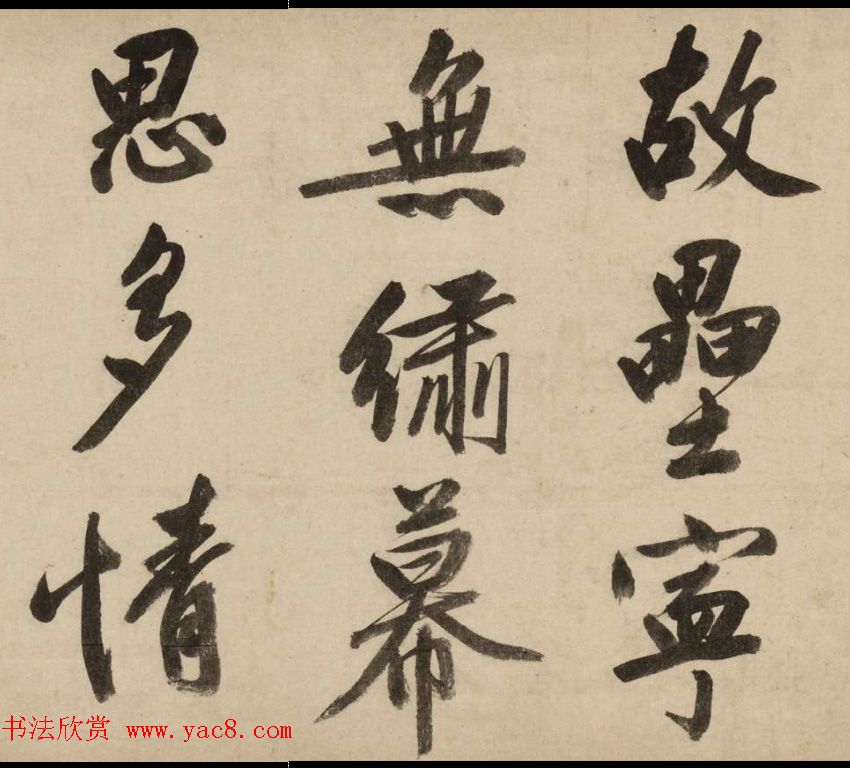 故壘寧
無繡幕
思多情
书法欣赏 www.yac8.com